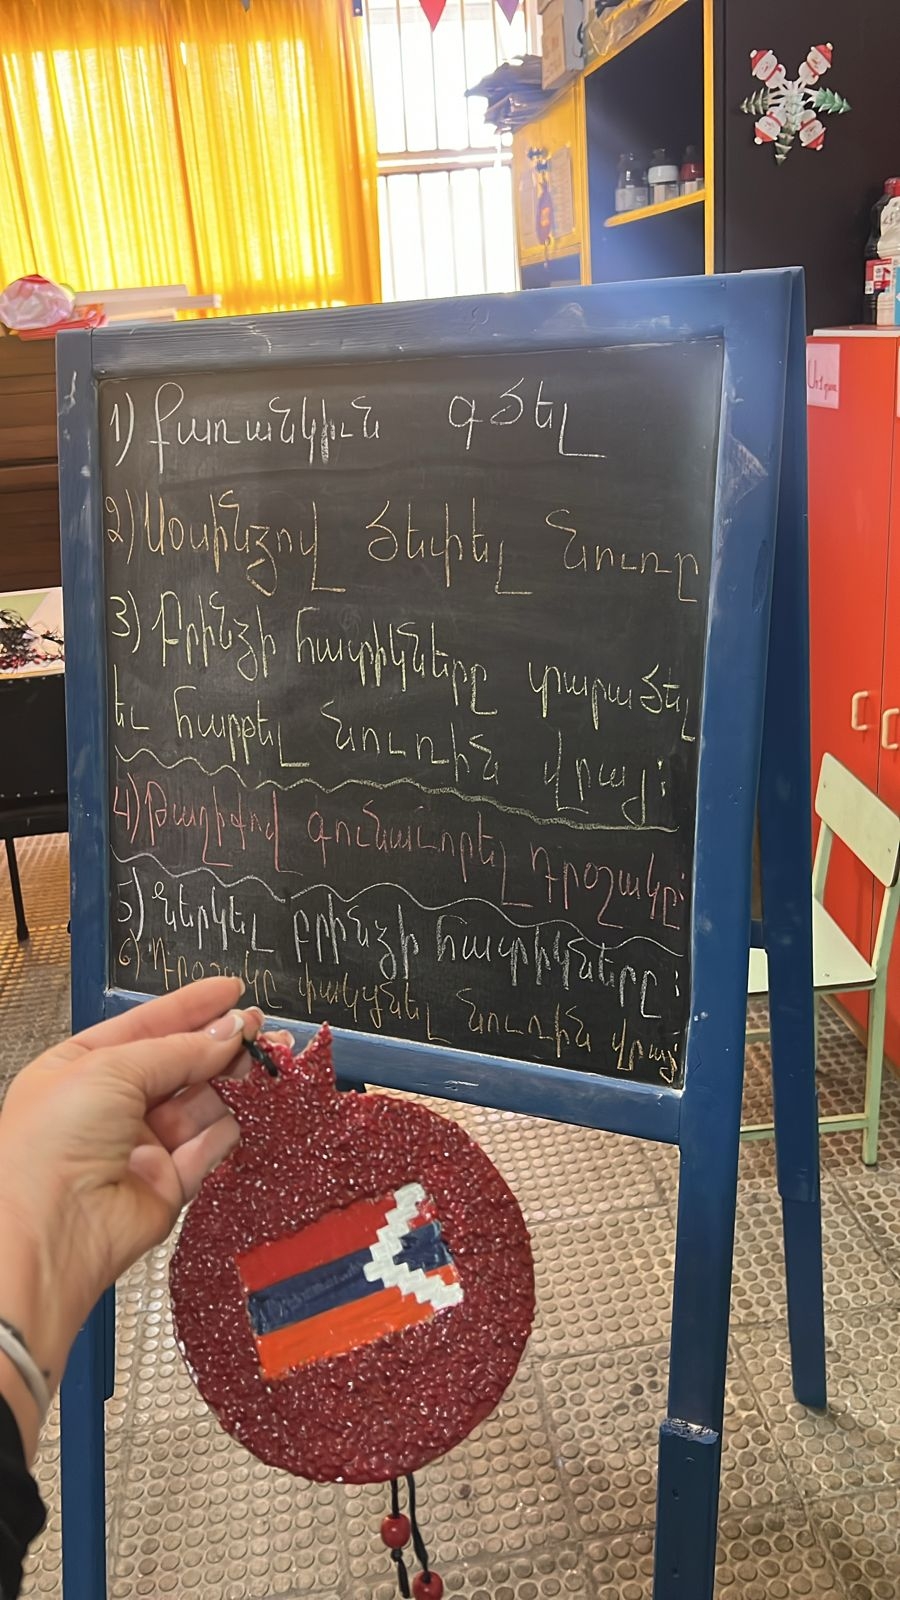 1) Քառանկիւն գծել
2) Սօսինձով ծեփել նուռը
3) Բրինձի հատիկները տարածել
եւ հարթել նուռին վրայ։
4) Թաղիքով գունաւորել դրօշակը։
5) Ներկել բրինձի հատիկները։
6) Դրօշակը փակցնել նուռին վրայ